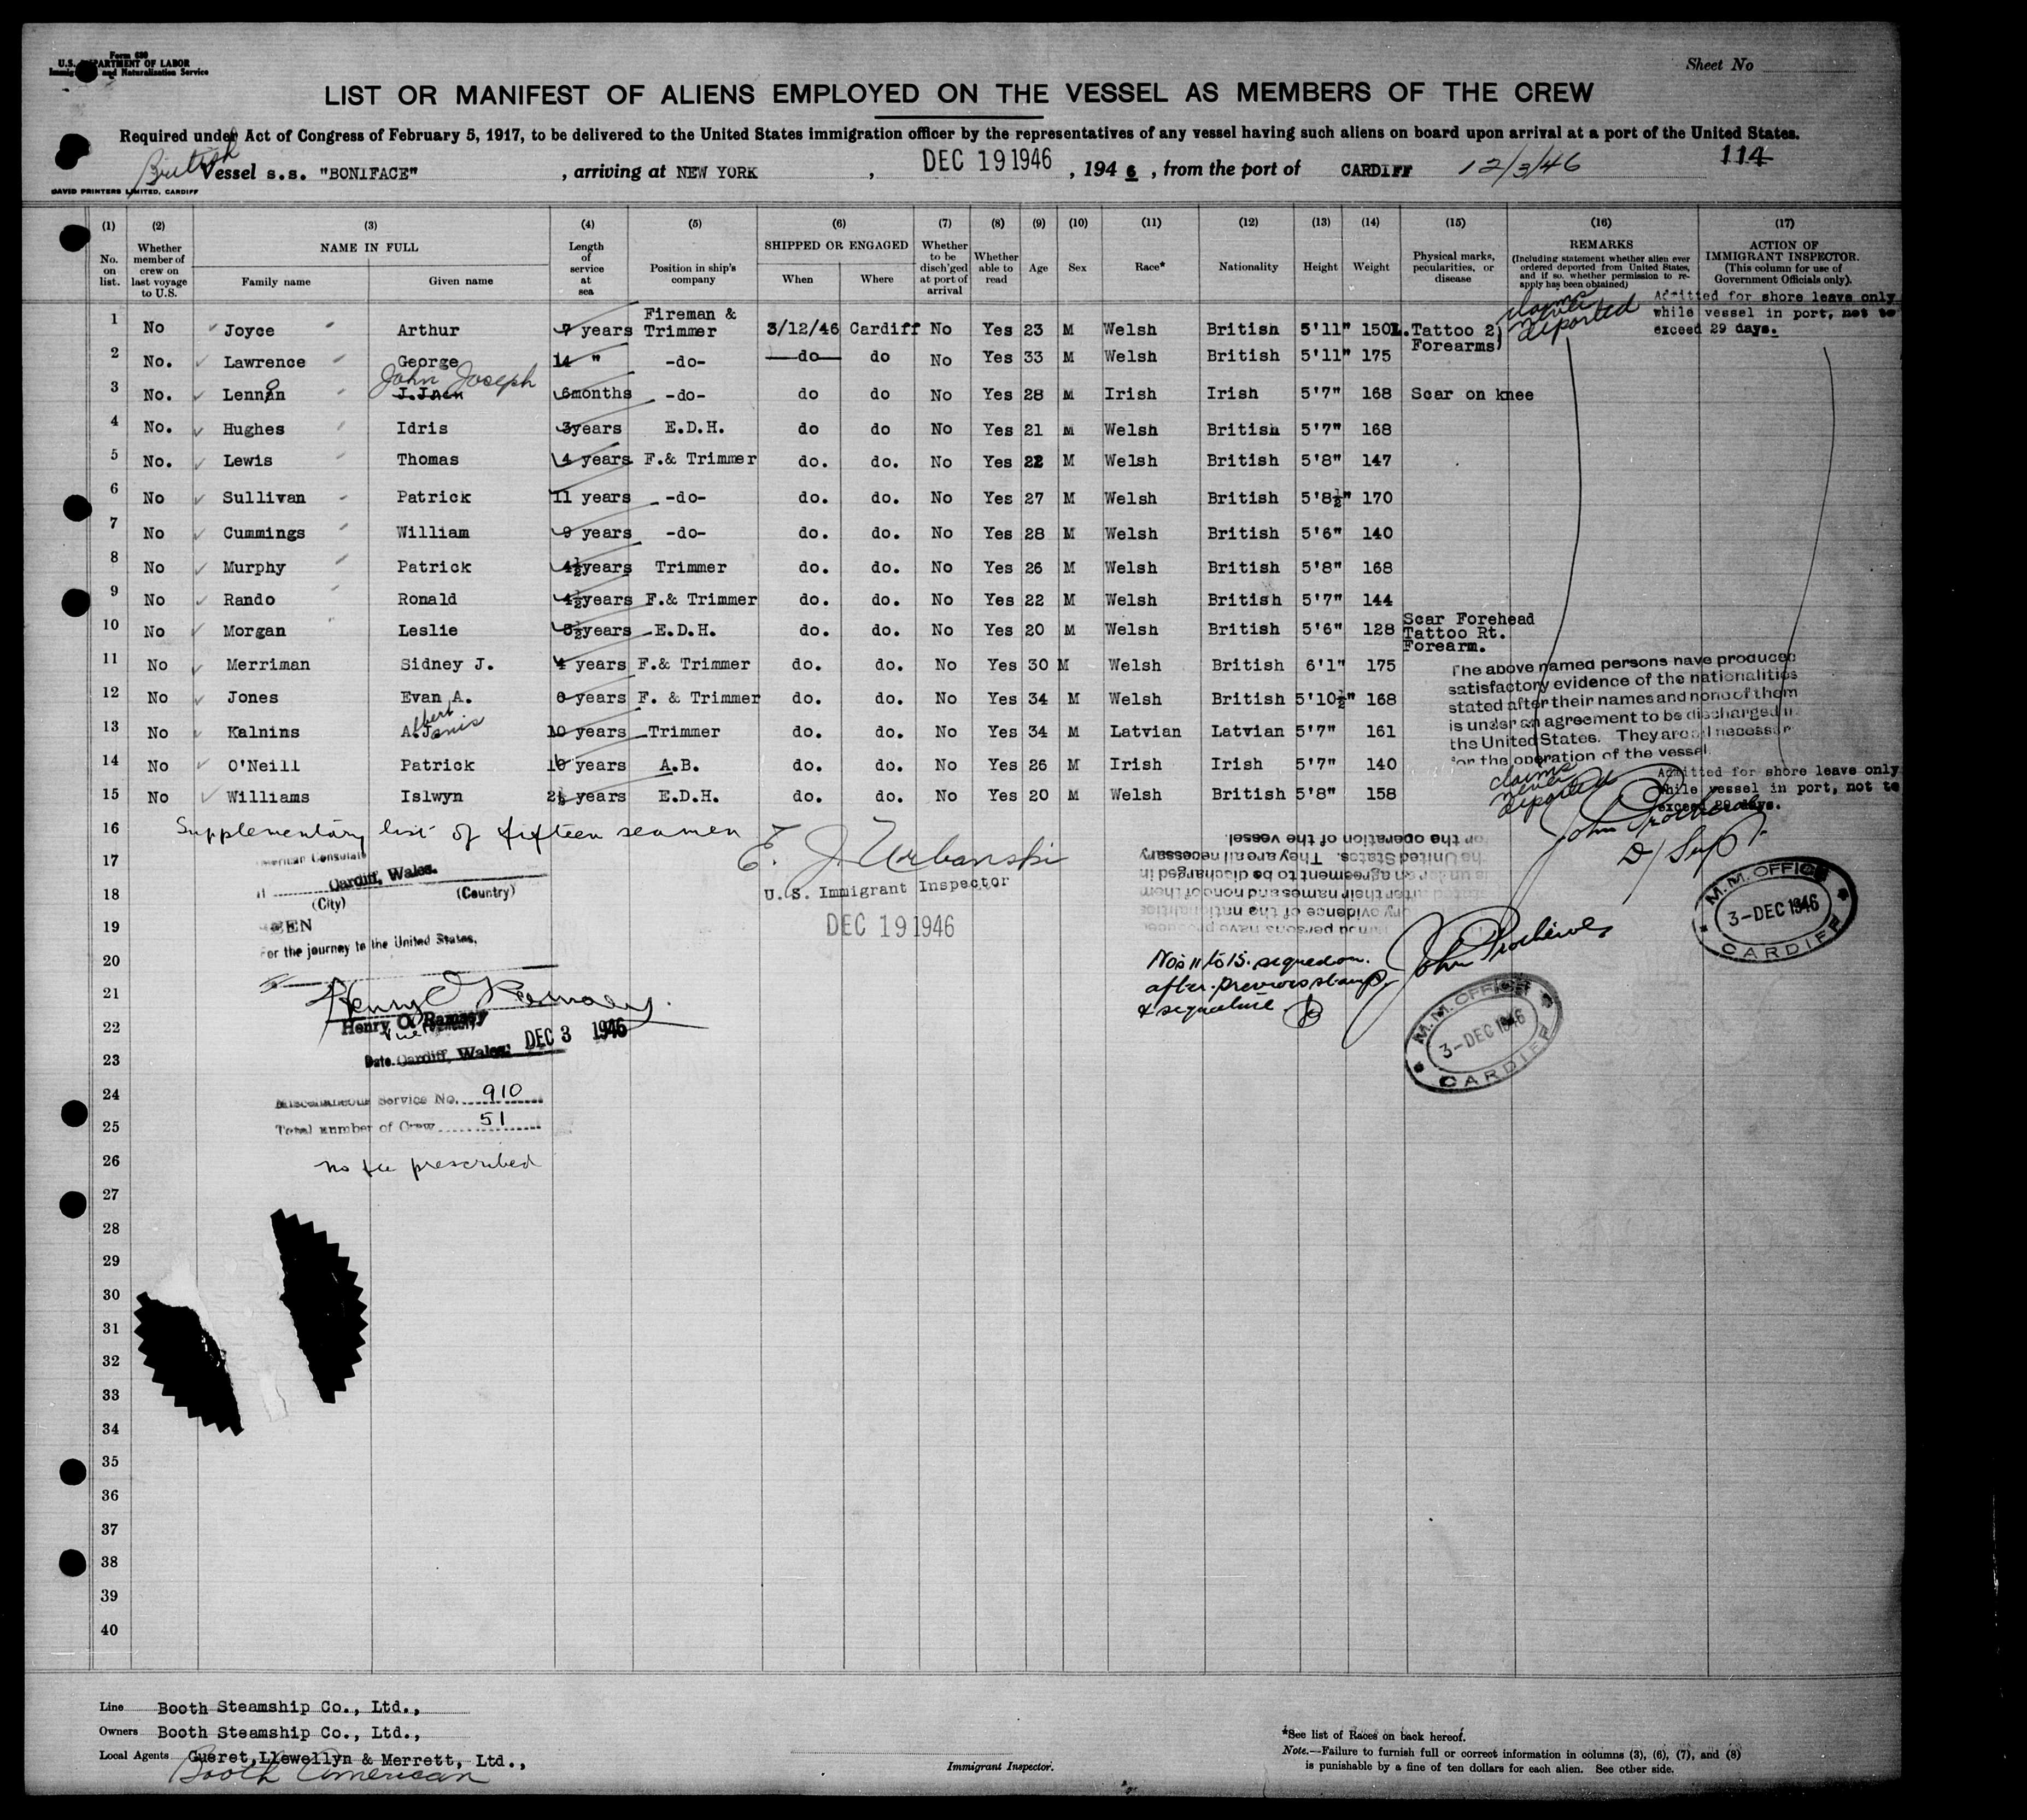 Form 680
U.S. DEPARTMENT OF LABOR
Immigration and Naturalization Service
Sheet No
LIST OR MANIFEST OF ALIENS EMPLOYED ON THE VESSEL AS MEMBERS OF THE CREW
Required under Act of Congress of February 5, 1917, to be delivered to the United States immigration officer by the representatives of any vessel having such aliens on board upon arrival at a port of the United States.
British Vessel s.s. "BONIFACE", arriving at NEW YORK, DEC 19 1946, 194 6, from the port of CARDIFF 12/3/46 114
DAVID PRINTERS LIMITED, CARDIFF
(1) (2) (3) (4) (5) (6) (7) (8) (9) (10) (11) (12) (13) (14) (15) (16) (17)
No. on list. Whether member of crew on last voyage to U.S. NAME IN FULL Family name Given name Length of service at sea Position in ship's company SHIPPED OR ENGAGED When Where Whether to be disch'ged at port of arrival Whether able to read Age Sex Race* Nationality Height Weight Physical marks, pecularities, or disease REMARKS (Including statement whether alien ever ordered deported from United States, and if so, whether permission to re-apply has been obtained) ACTION OF IMMIGRANT INSPECTOR. (This column for use of Government Officials only).
claims never deported
Admitted for shore leave only while vessel in port, not to exceed 29 days.
1 No Joyce Arthur 7 years Fireman & Trimmer 3/12/46 Cardiff No Yes 23 M Welsh British 5'11" 150 Tattoo 2) Forearms)
2 No. Lawrence George 14 " -do- do do No Yes 33 M Welsh British 5'11" 175
3 No. Lennon J.Jack John Joseph 6months -do- do do No Yes 28 M Irish Irish 5'7" 168 Scar on knee
4 No. Hughes Idris 3years E.D.H. do do No Yes 21 M Welsh British 5'7" 168
5 No. Lewis Thomas 4 years F.& Trimmer do. do. No Yes 22 M Welsh British 5'8" 147
6 No Sullivan Patrick 11 years -do- do. do. No Yes 27 M Welsh British 5'8½" 170
7 No Cummings William 9 years -do- do. do. No Yes 28 M Welsh British 5'6" 140
8 No Murphy Patrick 4½years Trimmer do. do. No Yes 26 M Welsh British 5'8" 168
9 No Rando Ronald 4½years F.& Trimmer do. do. No Yes 22 M Welsh British 5'7" 144
10 No Morgan Leslie 3½years E.D.H. do. do. No Yes 20 M Welsh British 5'6" 128 Scar Forehead Tattoo Rt. Forearm.
11 No Merriman Sidney J. 4 years F.& Trimmer do. do. No Yes 30 M Welsh British 6'1" 175
12 No Jones Evan A. 6 years F. & Trimmer do. do. No Yes 34 M Welsh British 5'10½" 168
13 No Kalnins A.J. Albert Janis 10 years Trimmer do. do. No Yes 34 M Latvian Latvian 5'7" 161
14 No O'Neill Patrick 10 years A.B. do. do. No Yes 26 M Irish Irish 5'7" 140
15 No Williams Islwyn 2½ years E.D.H. do. do. No Yes 20 M Welsh British 5'8" 158
The above named persons have produced
satisfactory evidence of the nationalities
stated after their names and none of them
is under an agreement to be discharged in
the United States. They are all necessary
for the operation of the vessel.
claims never deported
Admitted for shore leave only
while vessel in port, not to
exceed 29 days.
John Protheroe
D/Supt.
16 Supplementary list of fifteen seamen
17 American Consulate
18 Cardiff, Wales.
(City) (Country)
19 SEEN
For the journey to the United States.
20
21
Henry O. Ramsey
22 Henry O. Ramsey
Vice Consul
23 Date. Cardiff, Wales. DEC 3 1946
24 Miscellaneous Service No. 910
25 Total number of Crew 51
26 no fee prescribed
E. J. Urbanski
U. S. Immigrant Inspector
DEC 19 1946
named persons have produced
evidence of the nationalities
stated after their names and none of them
is under an agreement to be discharged in
the United States. They are all necessary
for the operation of the vessel.
Nos 11 to 15. signed on.
after previous stamp
& signature
John Protheroe
M.M. OFFICE
3-DEC 1946
CARDIFF
M.M. OFFICE
3-DEC 1946
CARDIFF
27
28
29
30
31
32
33
34
35
36
37
38
39
40
Line Booth Steamship Co., Ltd.,
Owners Booth Steamship Co., Ltd.,
Local Agents Gueret, Llewellyn & Merrett, Ltd.,
Booth American
Immigrant Inspector.
*See list of Races on back hereof.
Note.—Failure to furnish full or correct information in columns (3), (6), (7), and (8)
is punishable by a fine of ten dollars for each alien. See other side.